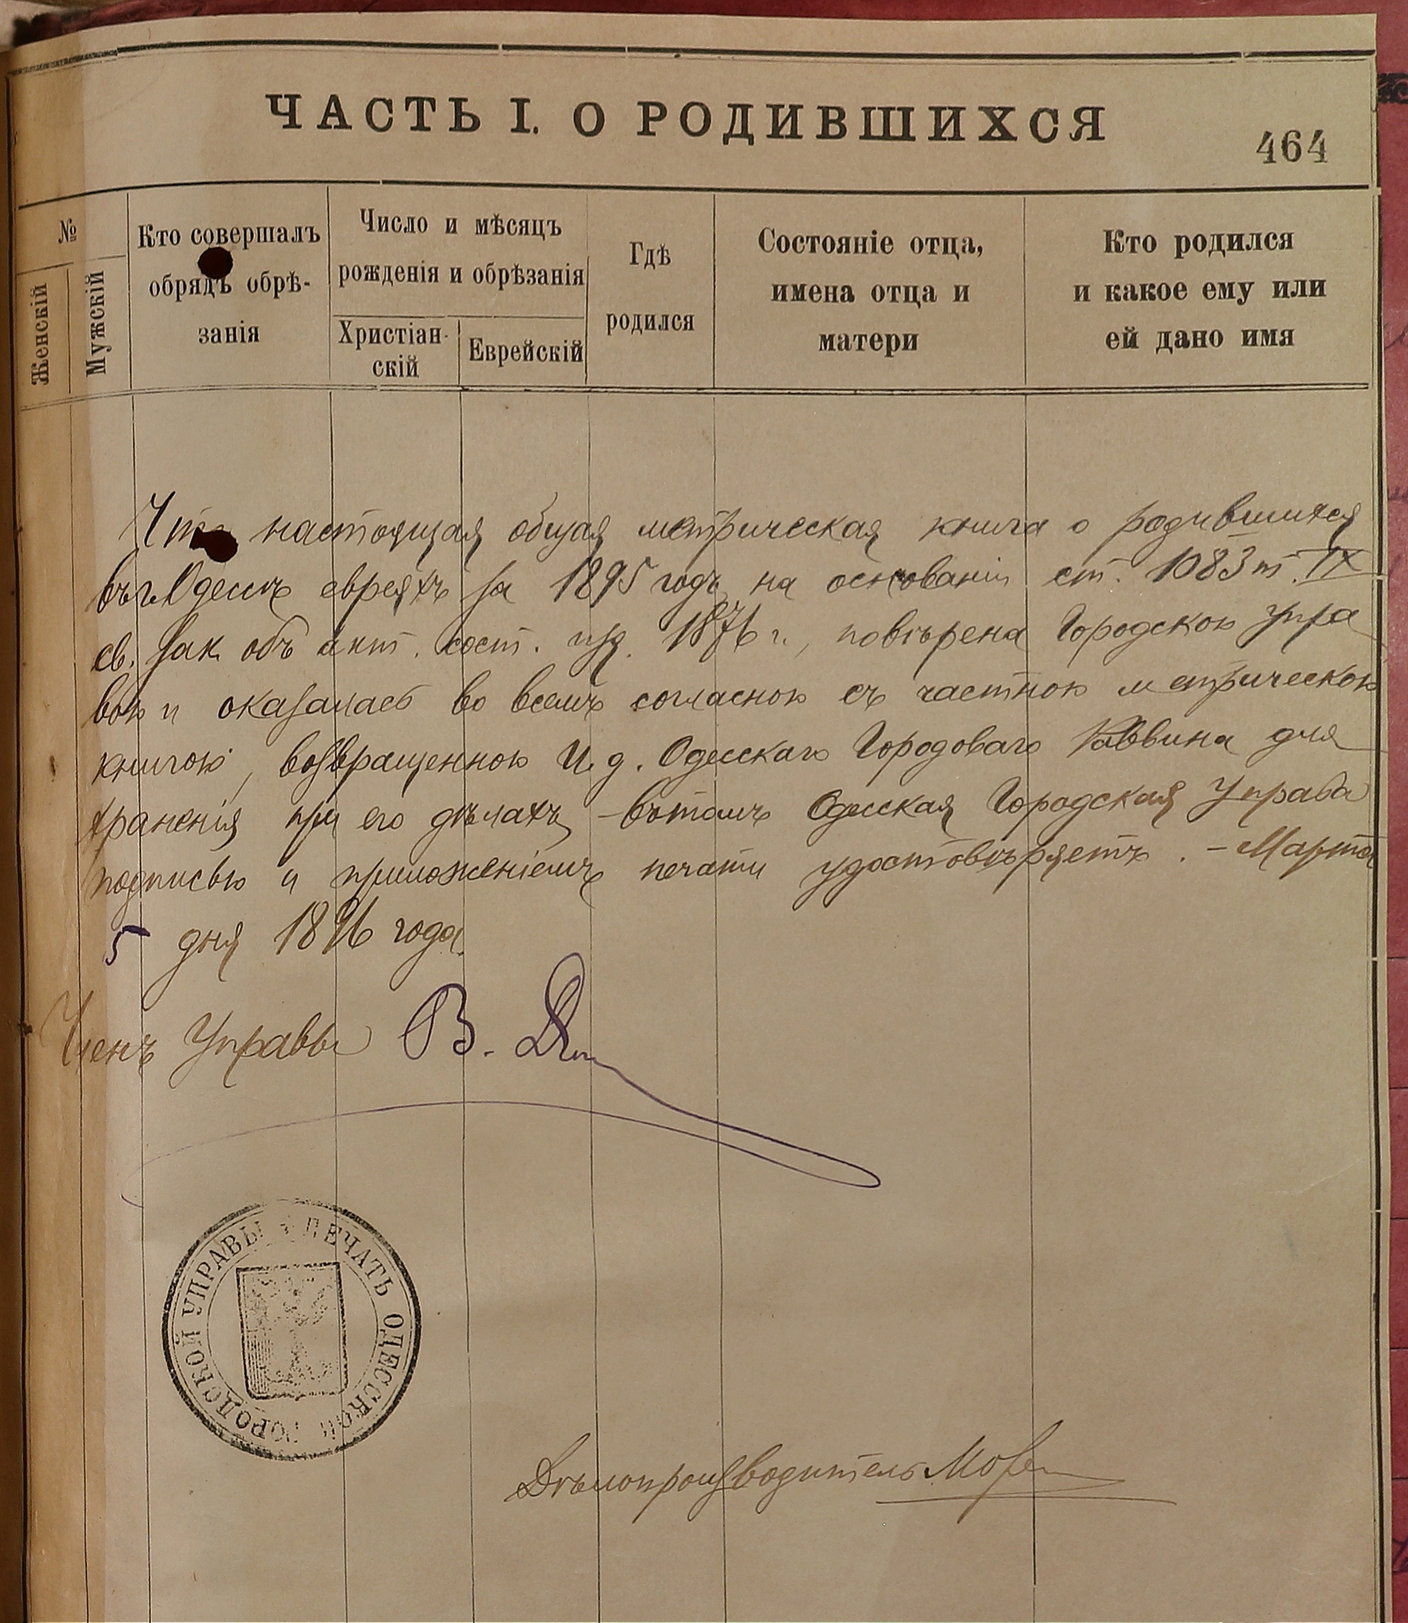 ЧАСТЬ I. О РОДИВШИХСЯ
464
№
Женскій
Мужскій
Кто совершалъ
обрядъ обрѣ-
занія
Число и мѣсяцъ
рожденія и обрѣзанія
Христіан-
скій
Еврейскій
Гдѣ
родился
Состояніе отца,
имена отца и
матери
Кто родился
и какое ему или
ей дано имя
Что настоящая общая метрическая книга о родившихся
въ г. Одессѣ евреяхъ за 1895 годъ на основаніи ст. 1083 т. IX
св. Зак. объ акт. сост. изд. 1876 г., повѣрена Городскою Упра
вою и оказалась во всемъ согласною съ частною метрическою
книгою, возвращенною И. д. Одесскаго Городоваго Раввина для
храненія при его дѣлахъ, – въ томъ Одесская Городская Управа
подписью и приложеніемъ печати удостовѣряетъ. – Марта
5 дня 1896 года.
Членъ Управы В.
ПЕЧАТЬ ОДЕССКОЙ ГОРОДСКОЙ УПРАВЫ
Дѣлопроизводитель